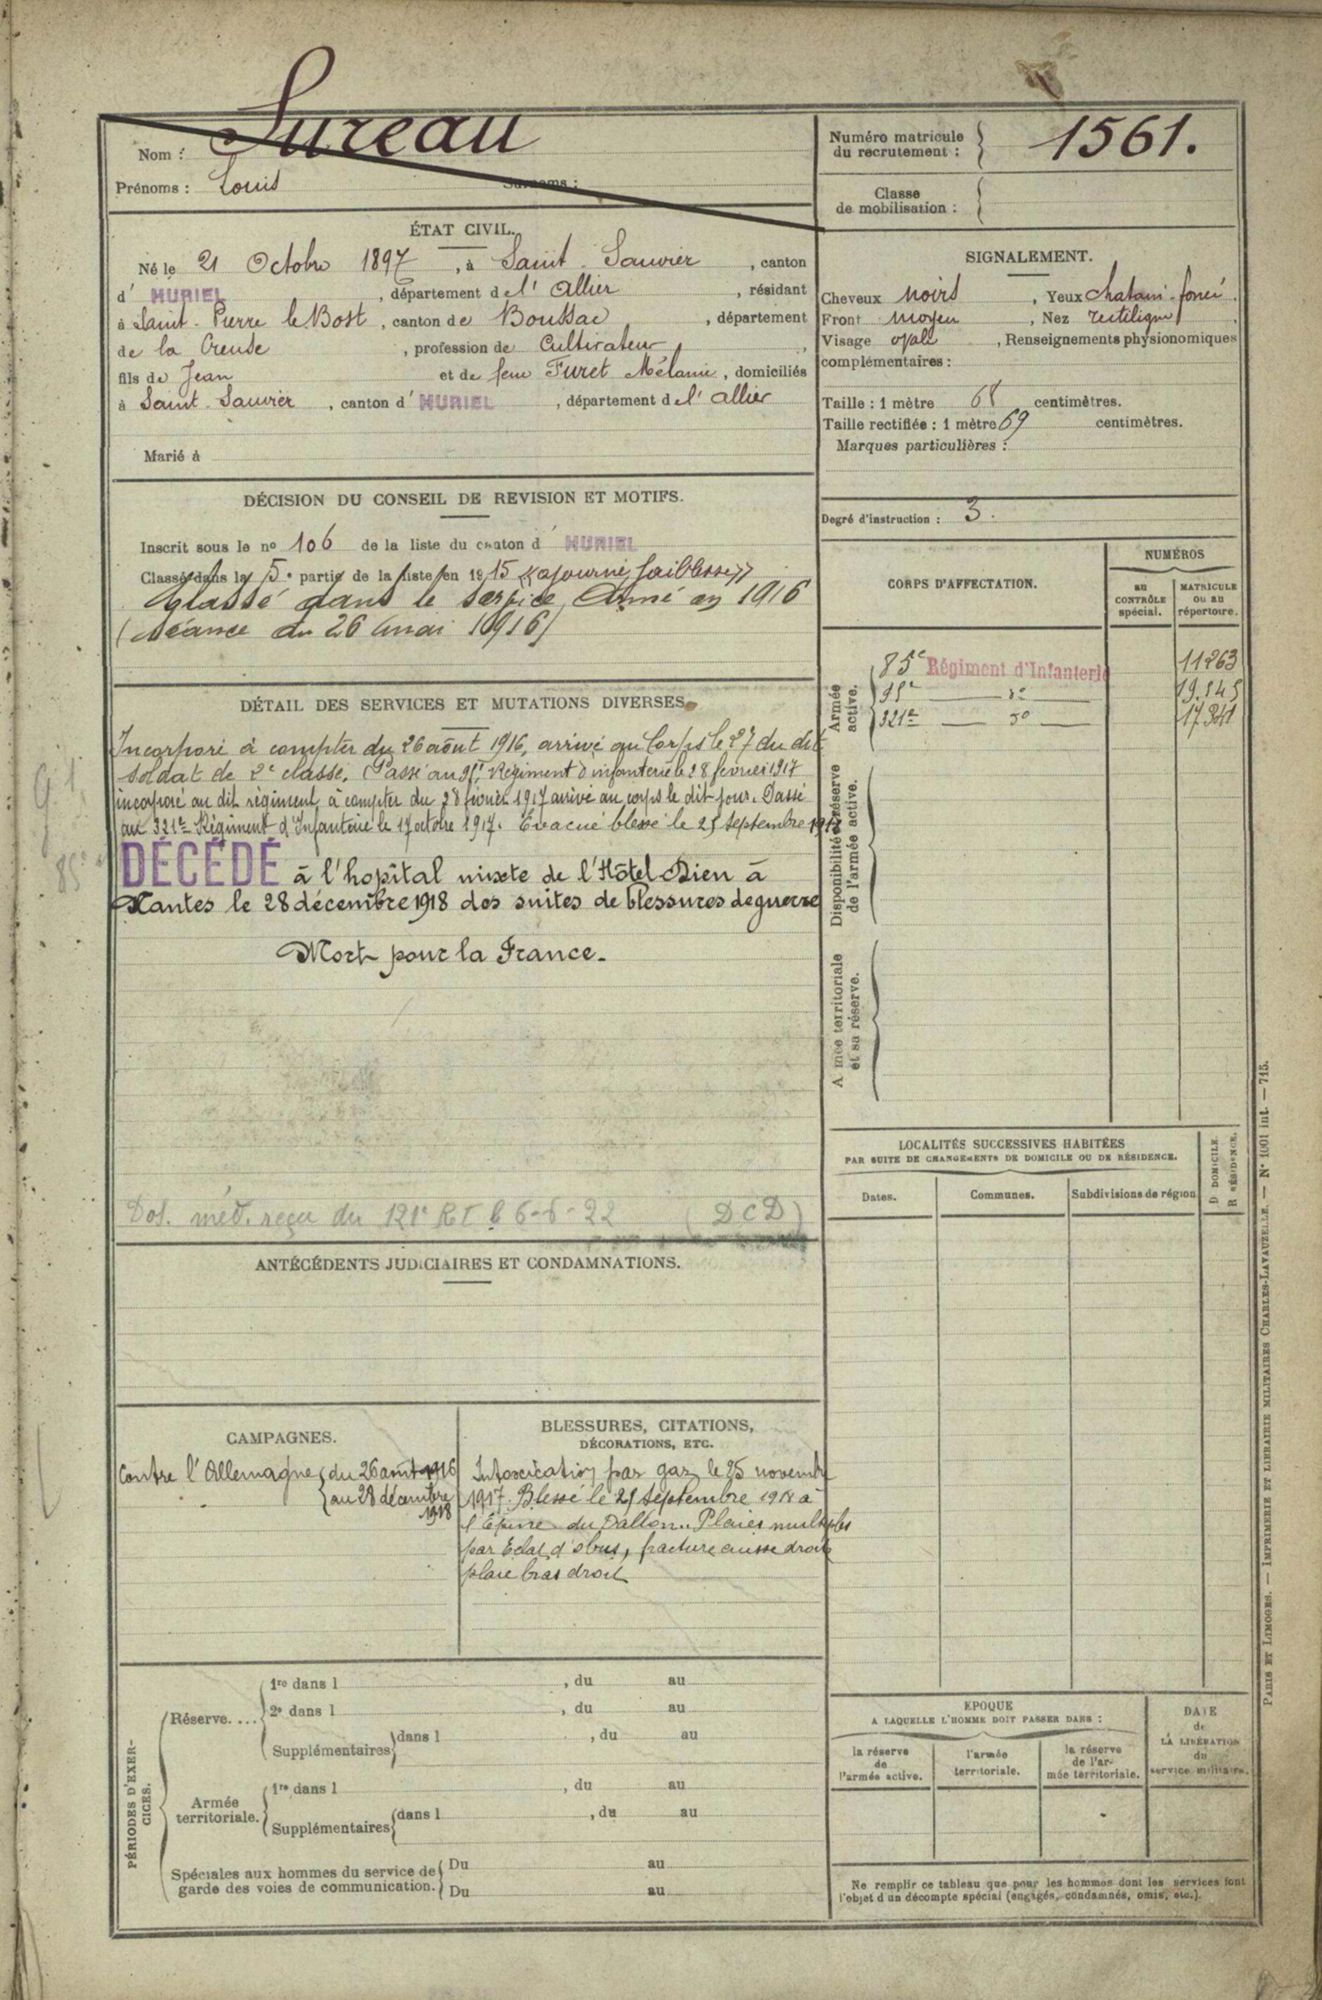 Nom : Sureau
Prénoms : Louis Surnoms :
Numéro matricule du recrutement : 1561.
Classe de mobilisation :
ÉTAT CIVIL.
Né le 21 Octobre 1897, à Saint Sauvier, canton
d' HURIEL, département de l'Allier, résidant
à Saint-Pierre le Bost, canton de Boussac, département
de la Creuse, profession de Cultivateur,
fils de Jean et de feue Furet Mélanie, domiciliés
à Saint-Sauvier, canton d' HURIEL, département de l'Allier
Marié à
SIGNALEMENT.
Cheveux noirs, Yeux chatain foncé.
Front moyen, Nez rectiligne,
Visage ovale, Renseignements physionomiques
complémentaires :
Taille : 1 mètre 68 centimètres.
Taille rectifiée : 1 mètre 69 centimètres.
Marques particulières :
Degré d'instruction : 3.
DÉCISION DU CONSEIL DE REVISION ET MOTIFS.
Inscrit sous le no 106 de la liste du canton d HURIEL
Classé dans la 5e partie de la liste en 1915 (ajourné faiblesse)
Classé dans le service armé en 1916
(séance du 26 mai 1916)
DÉTAIL DES SERVICES ET MUTATIONS DIVERSES.
Incorporé à compter du 26 août 1916, arrivé au Corps le 27 du dit
soldat de 2e classe. Passé au 95e Régiment d'infanterie le 28 février 1917
incorporé au dit régiment à compter du 28 février 1917 arrivé au corps le dit jour. Passé
au 321e Régiment d'Infanterie le 17 octobre 1917. Évacué blessé le 25 septembre 1918
DÉCÉDÉ à l'hopital mixte de l'Hôtel Dieu à
Nantes le 28 décembre 1918 des suites de blessures de guerre
Mort pour la France.
Dos. méd. reçu du 121e RI le 6-6-22 (DCD)
G.1.
85e
CORPS D'AFFECTATION.
NUMÉROS
au CONTRÔLE spécial.
MATRICULE ou au répertoire.
Armée active.
85e Régiment d'Infanterie 11263
95e — do 19.545
321e — do — 17341
Disponibilité et réserve de l'armée active.
Armée territoriale et sa réserve.
LOCALITÉS SUCCESSIVES HABITÉES
PAR SUITE DE CHANGEMENTS DE DOMICILE OU DE RÉSIDENCE.
Dates. Communes. Subdivisions de région
D DOMICILE.
R RÉSIDENCE.
ANTÉCÉDENTS JUDICIAIRES ET CONDAMNATIONS.
CAMPAGNES.
Contre l'Allemagne du 26 août 1916
au 28 décembre
1918
BLESSURES, CITATIONS,
DÉCORATIONS, ETC.
Intoxication par gaz le 25 novembre
1917. Blessé le 25 septembre 1918 à
l'Epine du Dallon. Plaies multiples
par Eclat d'obus, fracture cuisse droite
plaie bras droit
PÉRIODES D'EXERCICES.
Réserve....
1re dans l , du au
2e dans l , du au
Supplémentaires dans l , du au
Armée territoriale.
1re dans l , du au
Supplémentaires dans l , du au
Spéciales aux hommes du service de
garde des voies de communication.
Du au
Du au
EPOQUE
A LAQUELLE L'HOMME DOIT PASSER DANS :
la réserve de l'armée active.
l'armée territoriale.
la réserve de l'armée territoriale.
DATE de LA LIBÉRATION du service militaire.
Ne remplir ce tableau que pour les hommes dont les services font
l'objet d'un décompte spécial (engagés, condamnés, omis, etc.).
PARIS ET LIMOGES. — IMPRIMERIE ET LIBRAIRIE MILITAIRES CHARLES-LAVAUZELLE. — N° 1001 int. — 715.